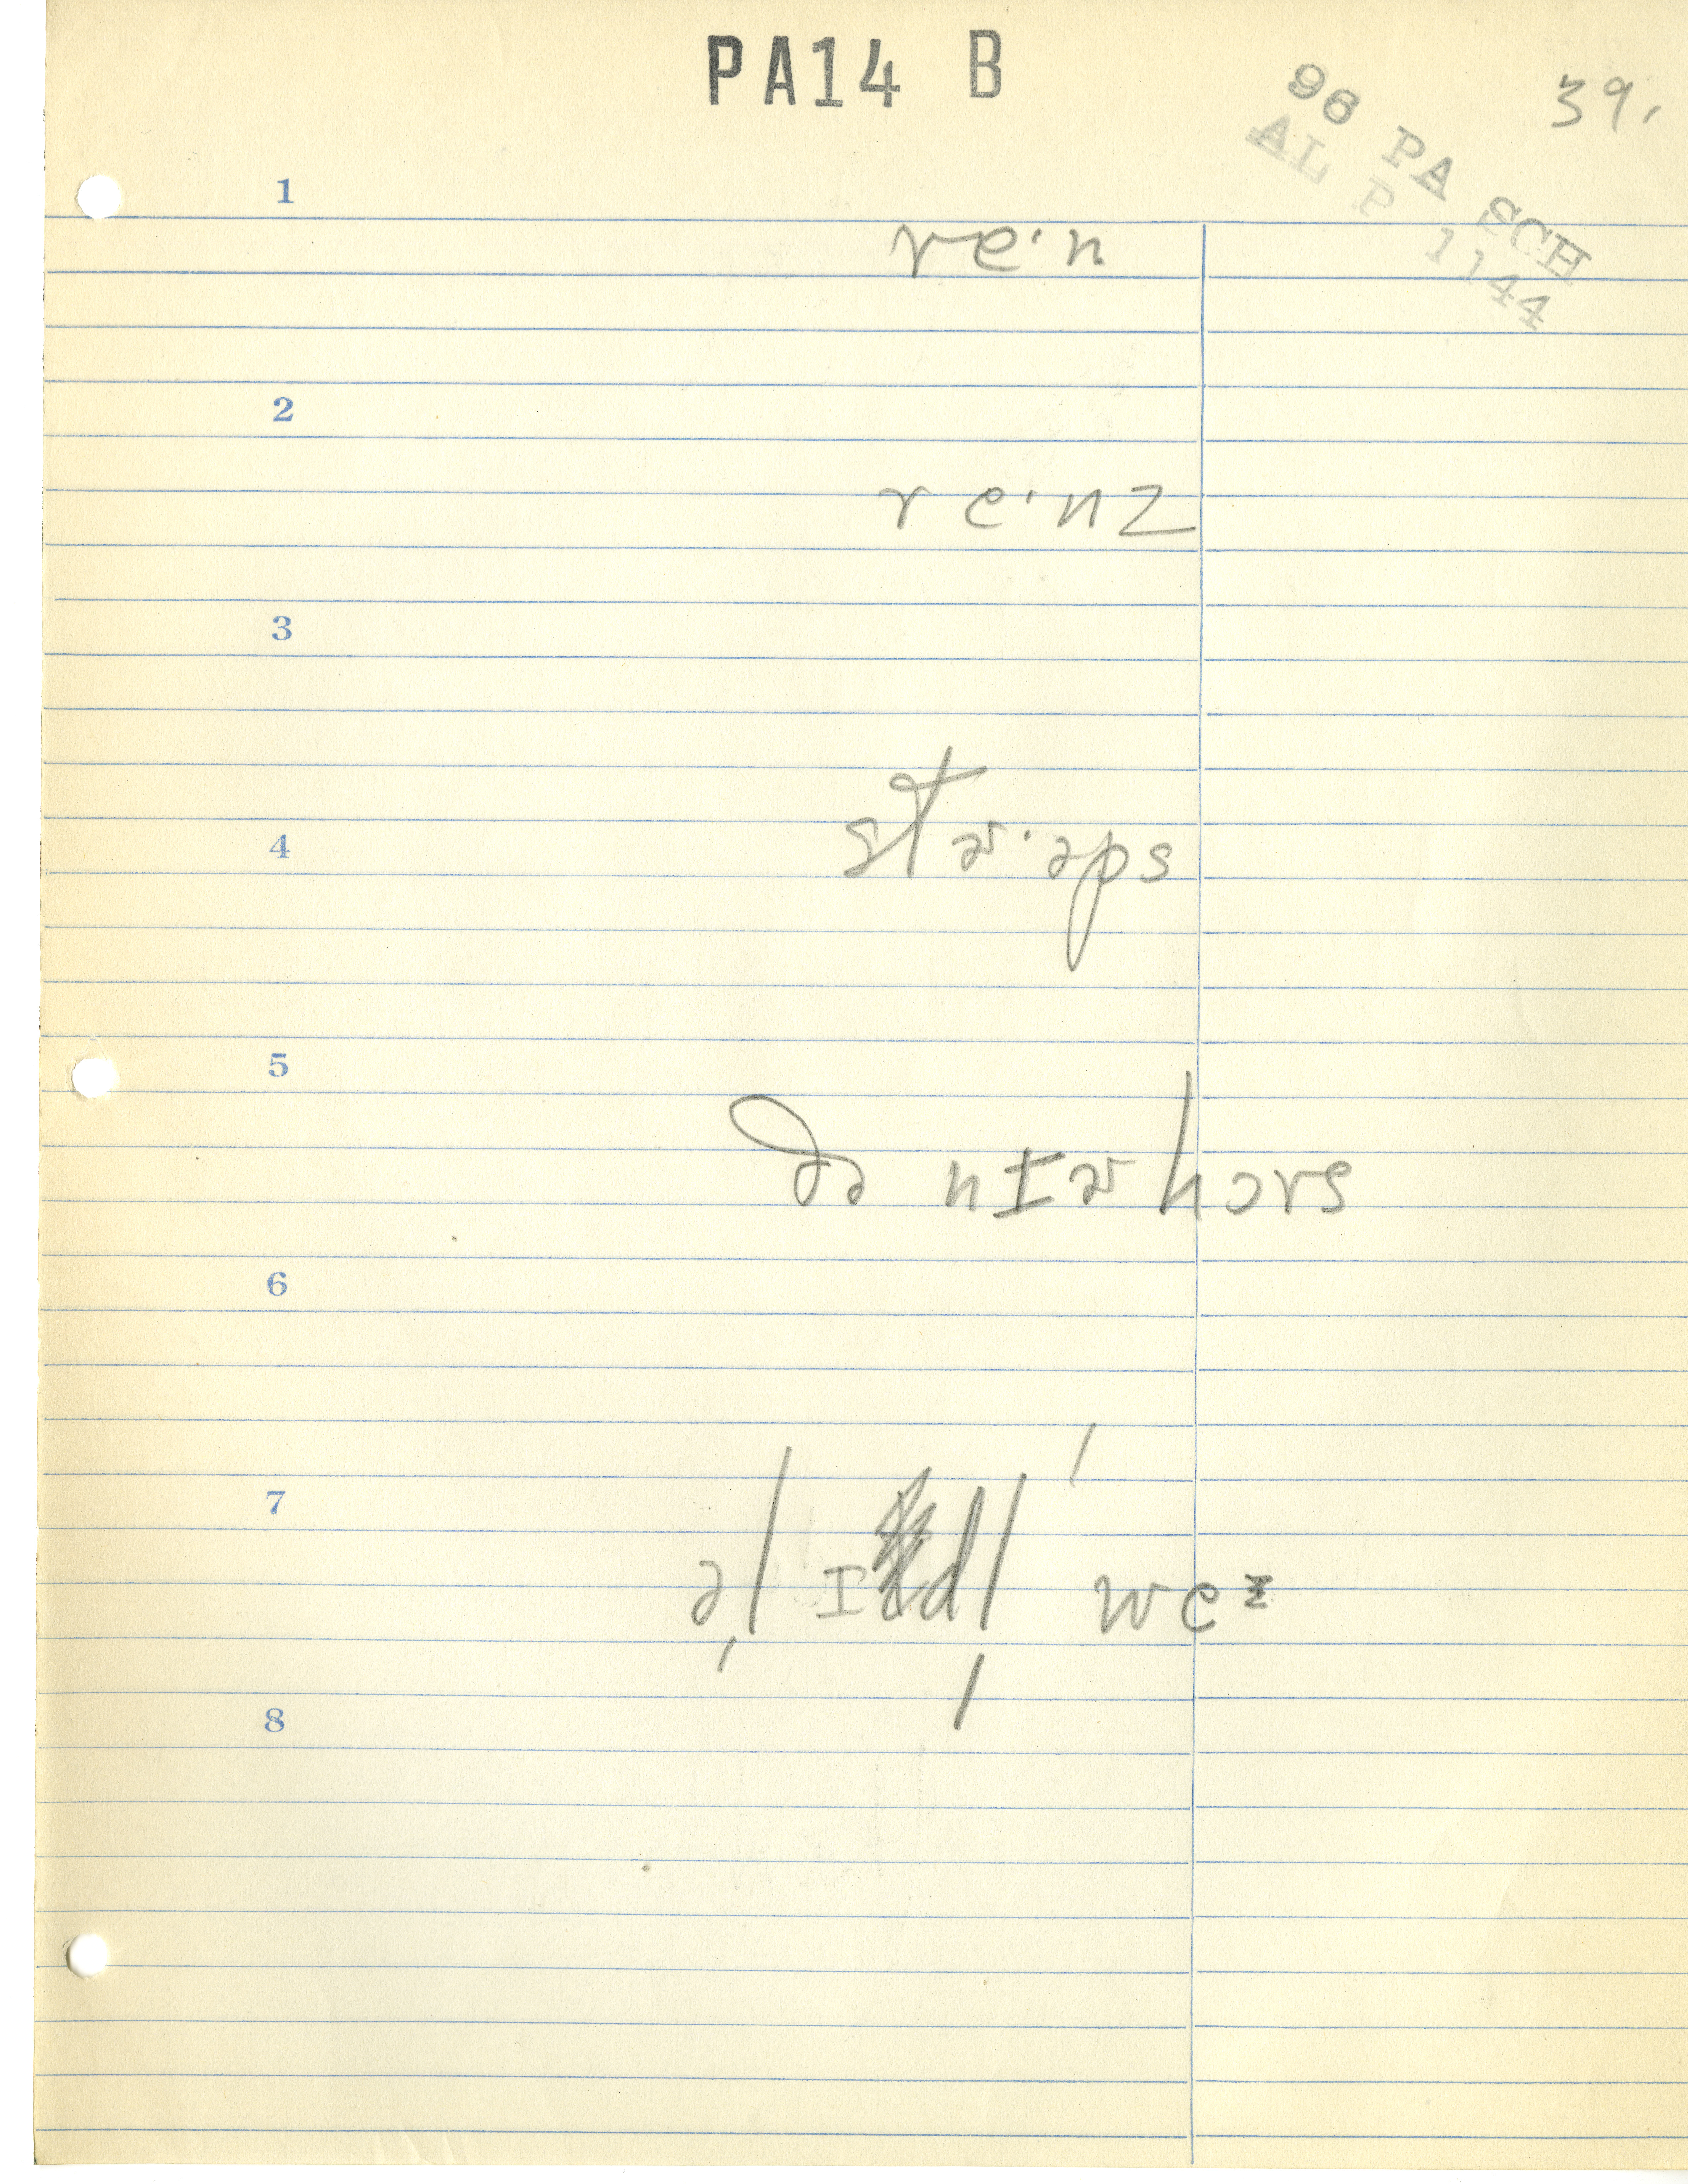 PA14 B
39.
96 PA SCH
AL P 1144
1
re·n
2
re·nz
3
4
stɚ·əps
5
ðə nɪɚhɔrs
6
7
əl ɪdl weᶻ
8